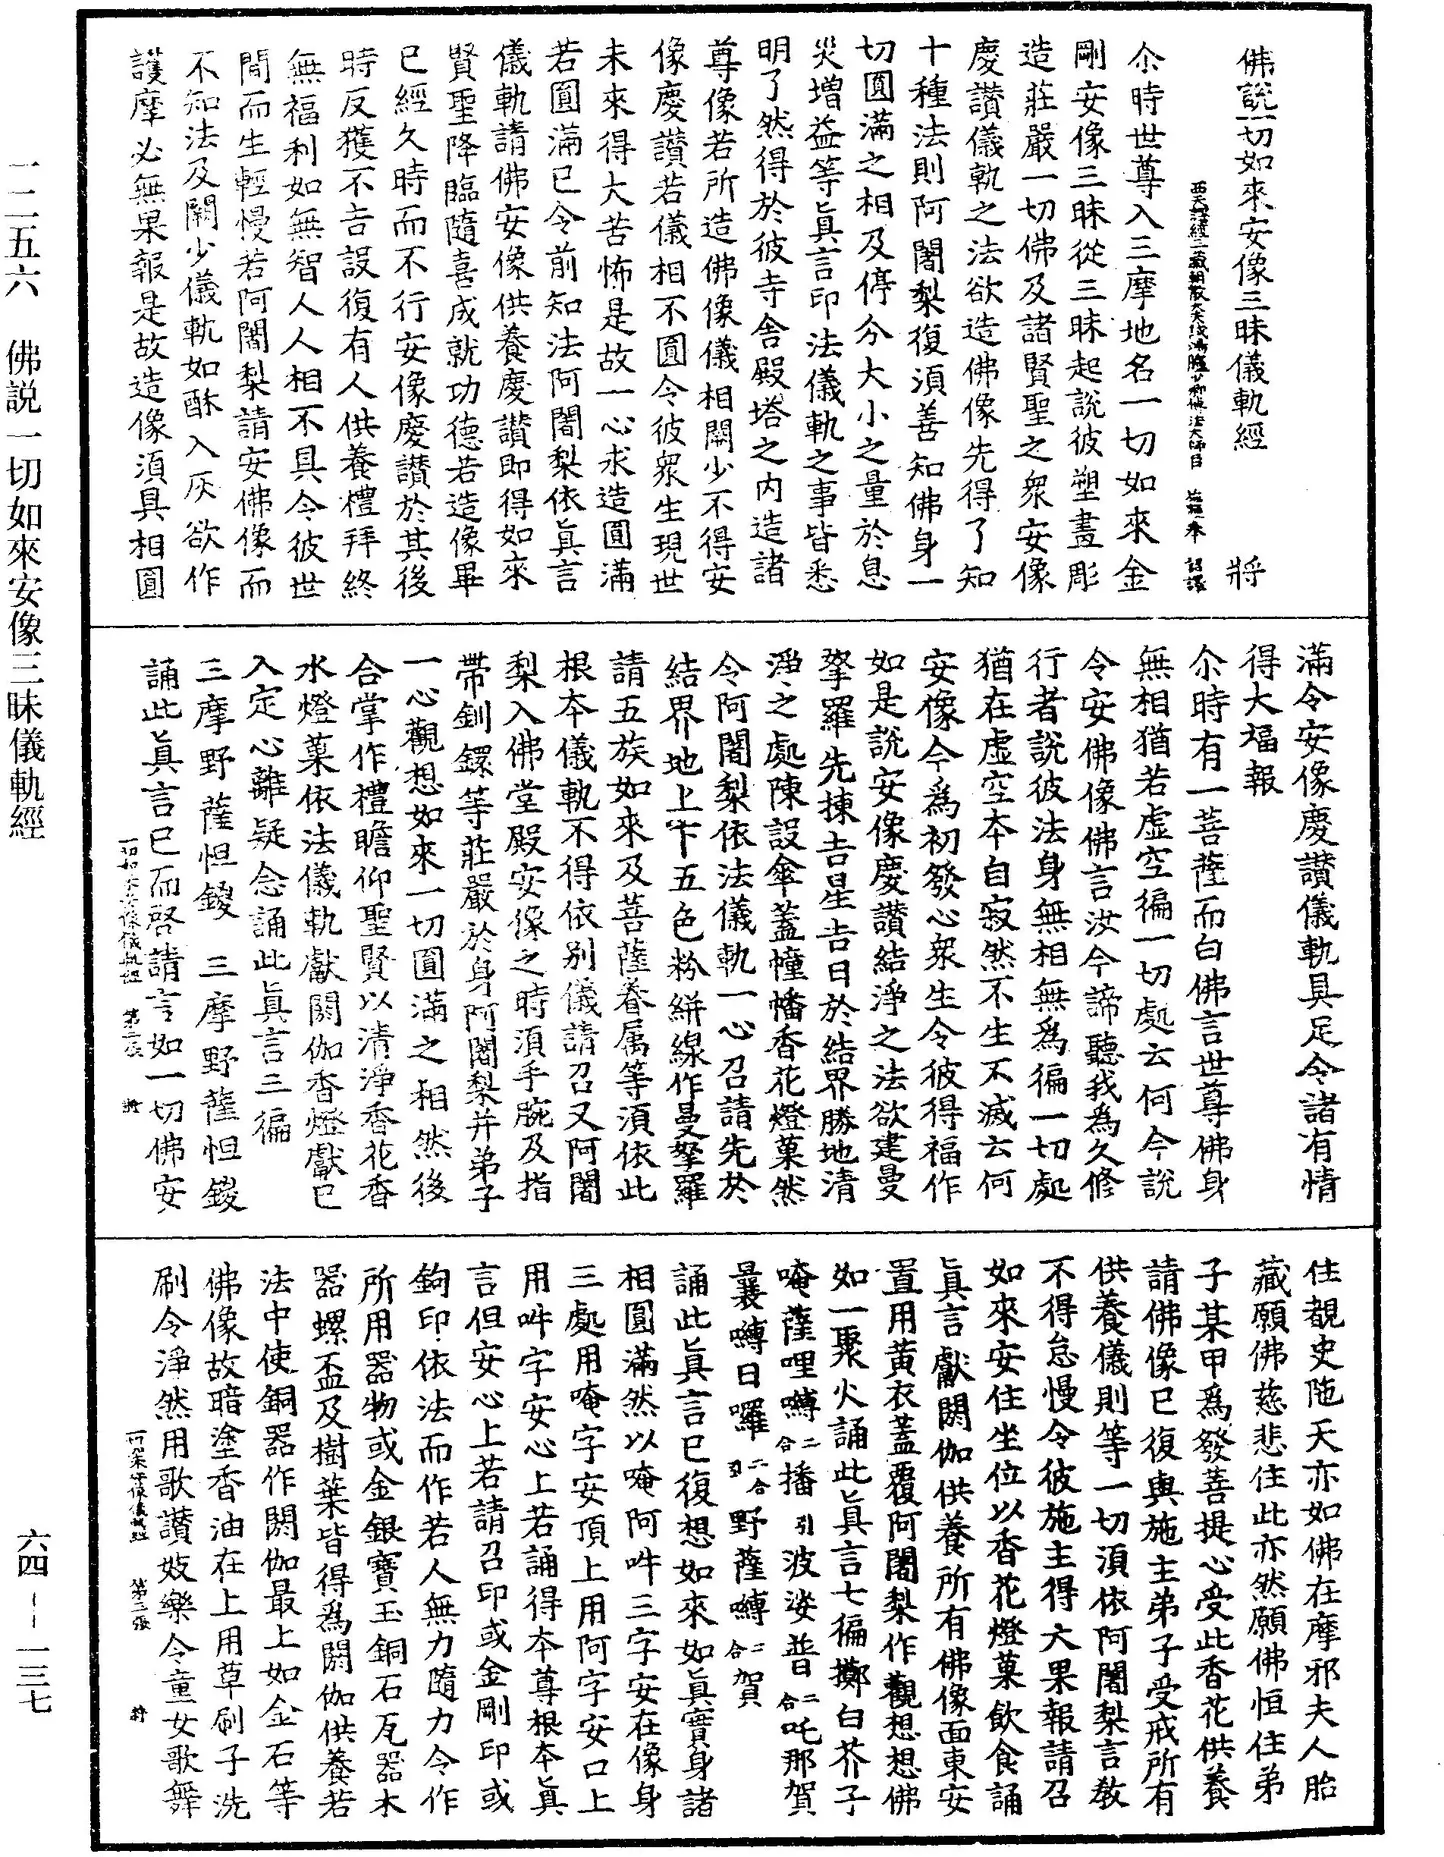 佛說一切如來安像三昧儀軌經　將
西天譯經三藏朝散大夫試鴻臚少卿傳法大師臣　施護奉　詔譯
尒時世尊入三摩地名一切如來金
剛安像三昧從三昧起說彼塑畫彫
造莊嚴一切佛及諸賢聖之衆安像
慶讃儀軌之法欲造佛像先得了知
十種法則阿闍梨復須善知佛身一
切圓滿之相及停分大小之量於息
災增益等眞言印法儀軌之事皆悉
明了然得於彼寺舍殿塔之內造諸
尊像若所造佛像儀相闕少不得安
像慶讃若儀相不圓令彼衆生現世
未來得大苦怖是故一心求造圓滿
若圓滿已令前知法阿闍梨依眞言
儀軌請佛安像供養慶讃即得如來
賢聖降臨隨喜成就功德若造像畢
已經久時而不行安像慶讃於其後
時反獲不吉設復有人供養禮拜終
無福利如無智人人相不具令彼世
間而生輕慢若阿闍梨請安佛像而
不知法及闕少儀軌如酥入灰欲作
護摩必無果報是故造像須具相圓
滿令安像慶讃儀軌具足令諸有情
得大福報
尒時有一菩薩而白佛言世尊佛身
無相猶若虛空徧一切處云何今說
令安佛像佛言汝今諦聽我為久修
行者說彼法身無相無爲徧一切處
猶在虛空本自寂然不生不滅云何
安像今為初發心衆生令彼得福作
如是說安像慶讃結淨之法欲建曼
拏羅先揀吉星吉日於結界勝地清
淨之處陳設傘蓋幢幡香花燈菓然
令阿闍梨依法儀軌一心召請先於
結界地上下五色粉絣線作曼拏羅
請五族如來及菩薩眷属等須依此
根本儀軌不得依别儀請召又阿闍
梨入佛堂殿安像之時須手腕及指
帶釧鐶等莊嚴於身阿闍梨并弟子
一心觀想如來一切圓滿之相然後
合掌作禮瞻仰聖賢以清淨香花香
水燈菓依法儀軌獻閼伽香燈獻已
入定心離疑念誦此眞言三徧
三摩野薩怛鑁　三摩野薩怛鑁
誦此眞言已而啓請言如一切佛安
一切如來安像儀軌經　第二張　將
住覩史陁天亦如佛在摩邪夫人胎
藏願佛慈悲住此亦然願佛恒住弟
子某甲為發菩提心受此香花供養
請佛像已復與施主弟子受戒所有
供養儀則等一切須依阿闍梨言教
不得怠慢令彼施主得大果報請召
如來安住坐位以香花燈菓飲食誦
眞言獻閼伽供養所有佛像面東安
置用黃衣蓋覆阿闍梨作觀想想佛
如一聚火誦此眞言七徧擲白芥子
唵薩哩嚩二合播引波娑普二合吒那賀
曩嚩日囉二合引野薩嚩二合賀
誦此眞言已復想如來如眞實身諸
相圓滿然以唵阿吽三字安在像身
三處用唵字安頂上用阿字安口上
用吽字安心上若誦得本尊根本眞
言但安心上若請召印或金剛印或
鉤印依法而作若人無力隨力令作
所用器物或金銀寶玉銅石瓦器木
器螺盃及樹葉皆得為閼伽供養若
法中使銅器作閼伽最上如金石等
佛像故暗塗香油在上用草刷子洗
刷令淨然用歌讃妓樂令童女歌舞
第三張　將
一二五六　佛説一切如來安像三昧儀軌經
六四－－一三七